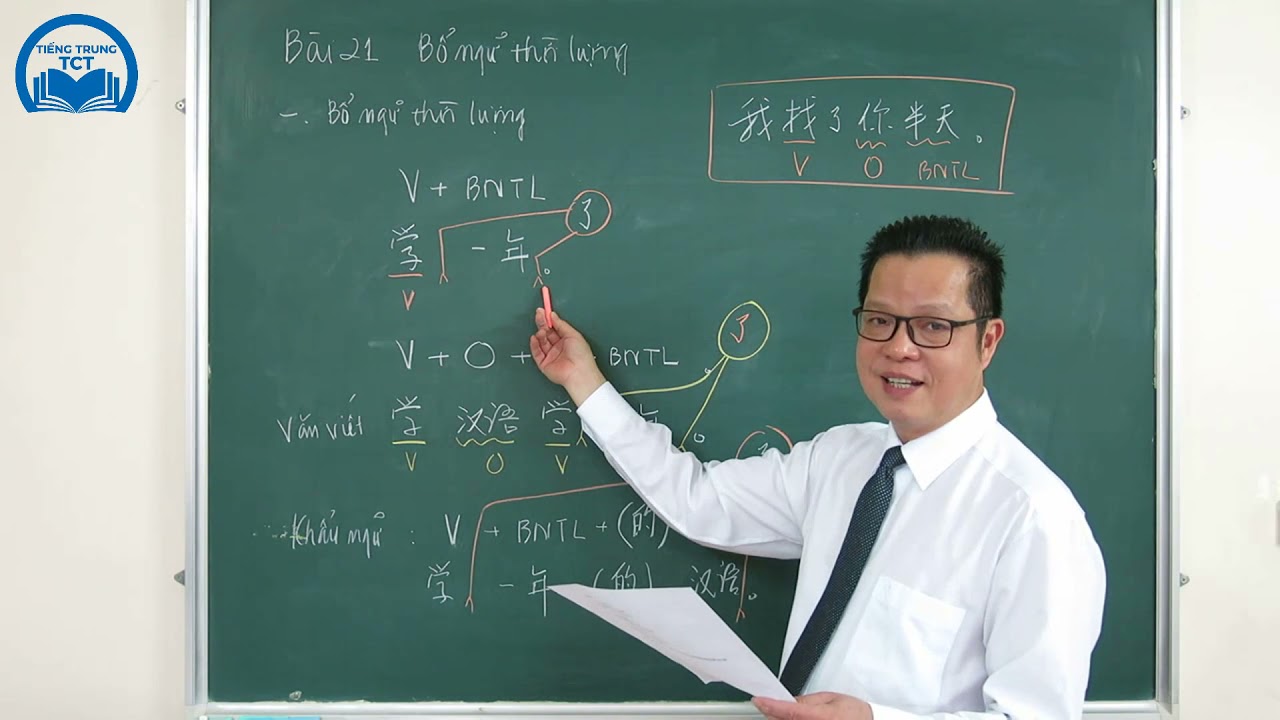 TIẾNG TRUNG
TCT
Bài 21 Bổ ngữ thời lượng
一. Bổ ngữ thời lượng
我找了你半天。
V O BNTL
V + BNTL
了
学 一年。
V
V + O + BNTL
了
Văn viết 学 汉语 学
V O V
Khẩu ngữ : V + BNTL + (的)
学 一年 (的) 汉语。